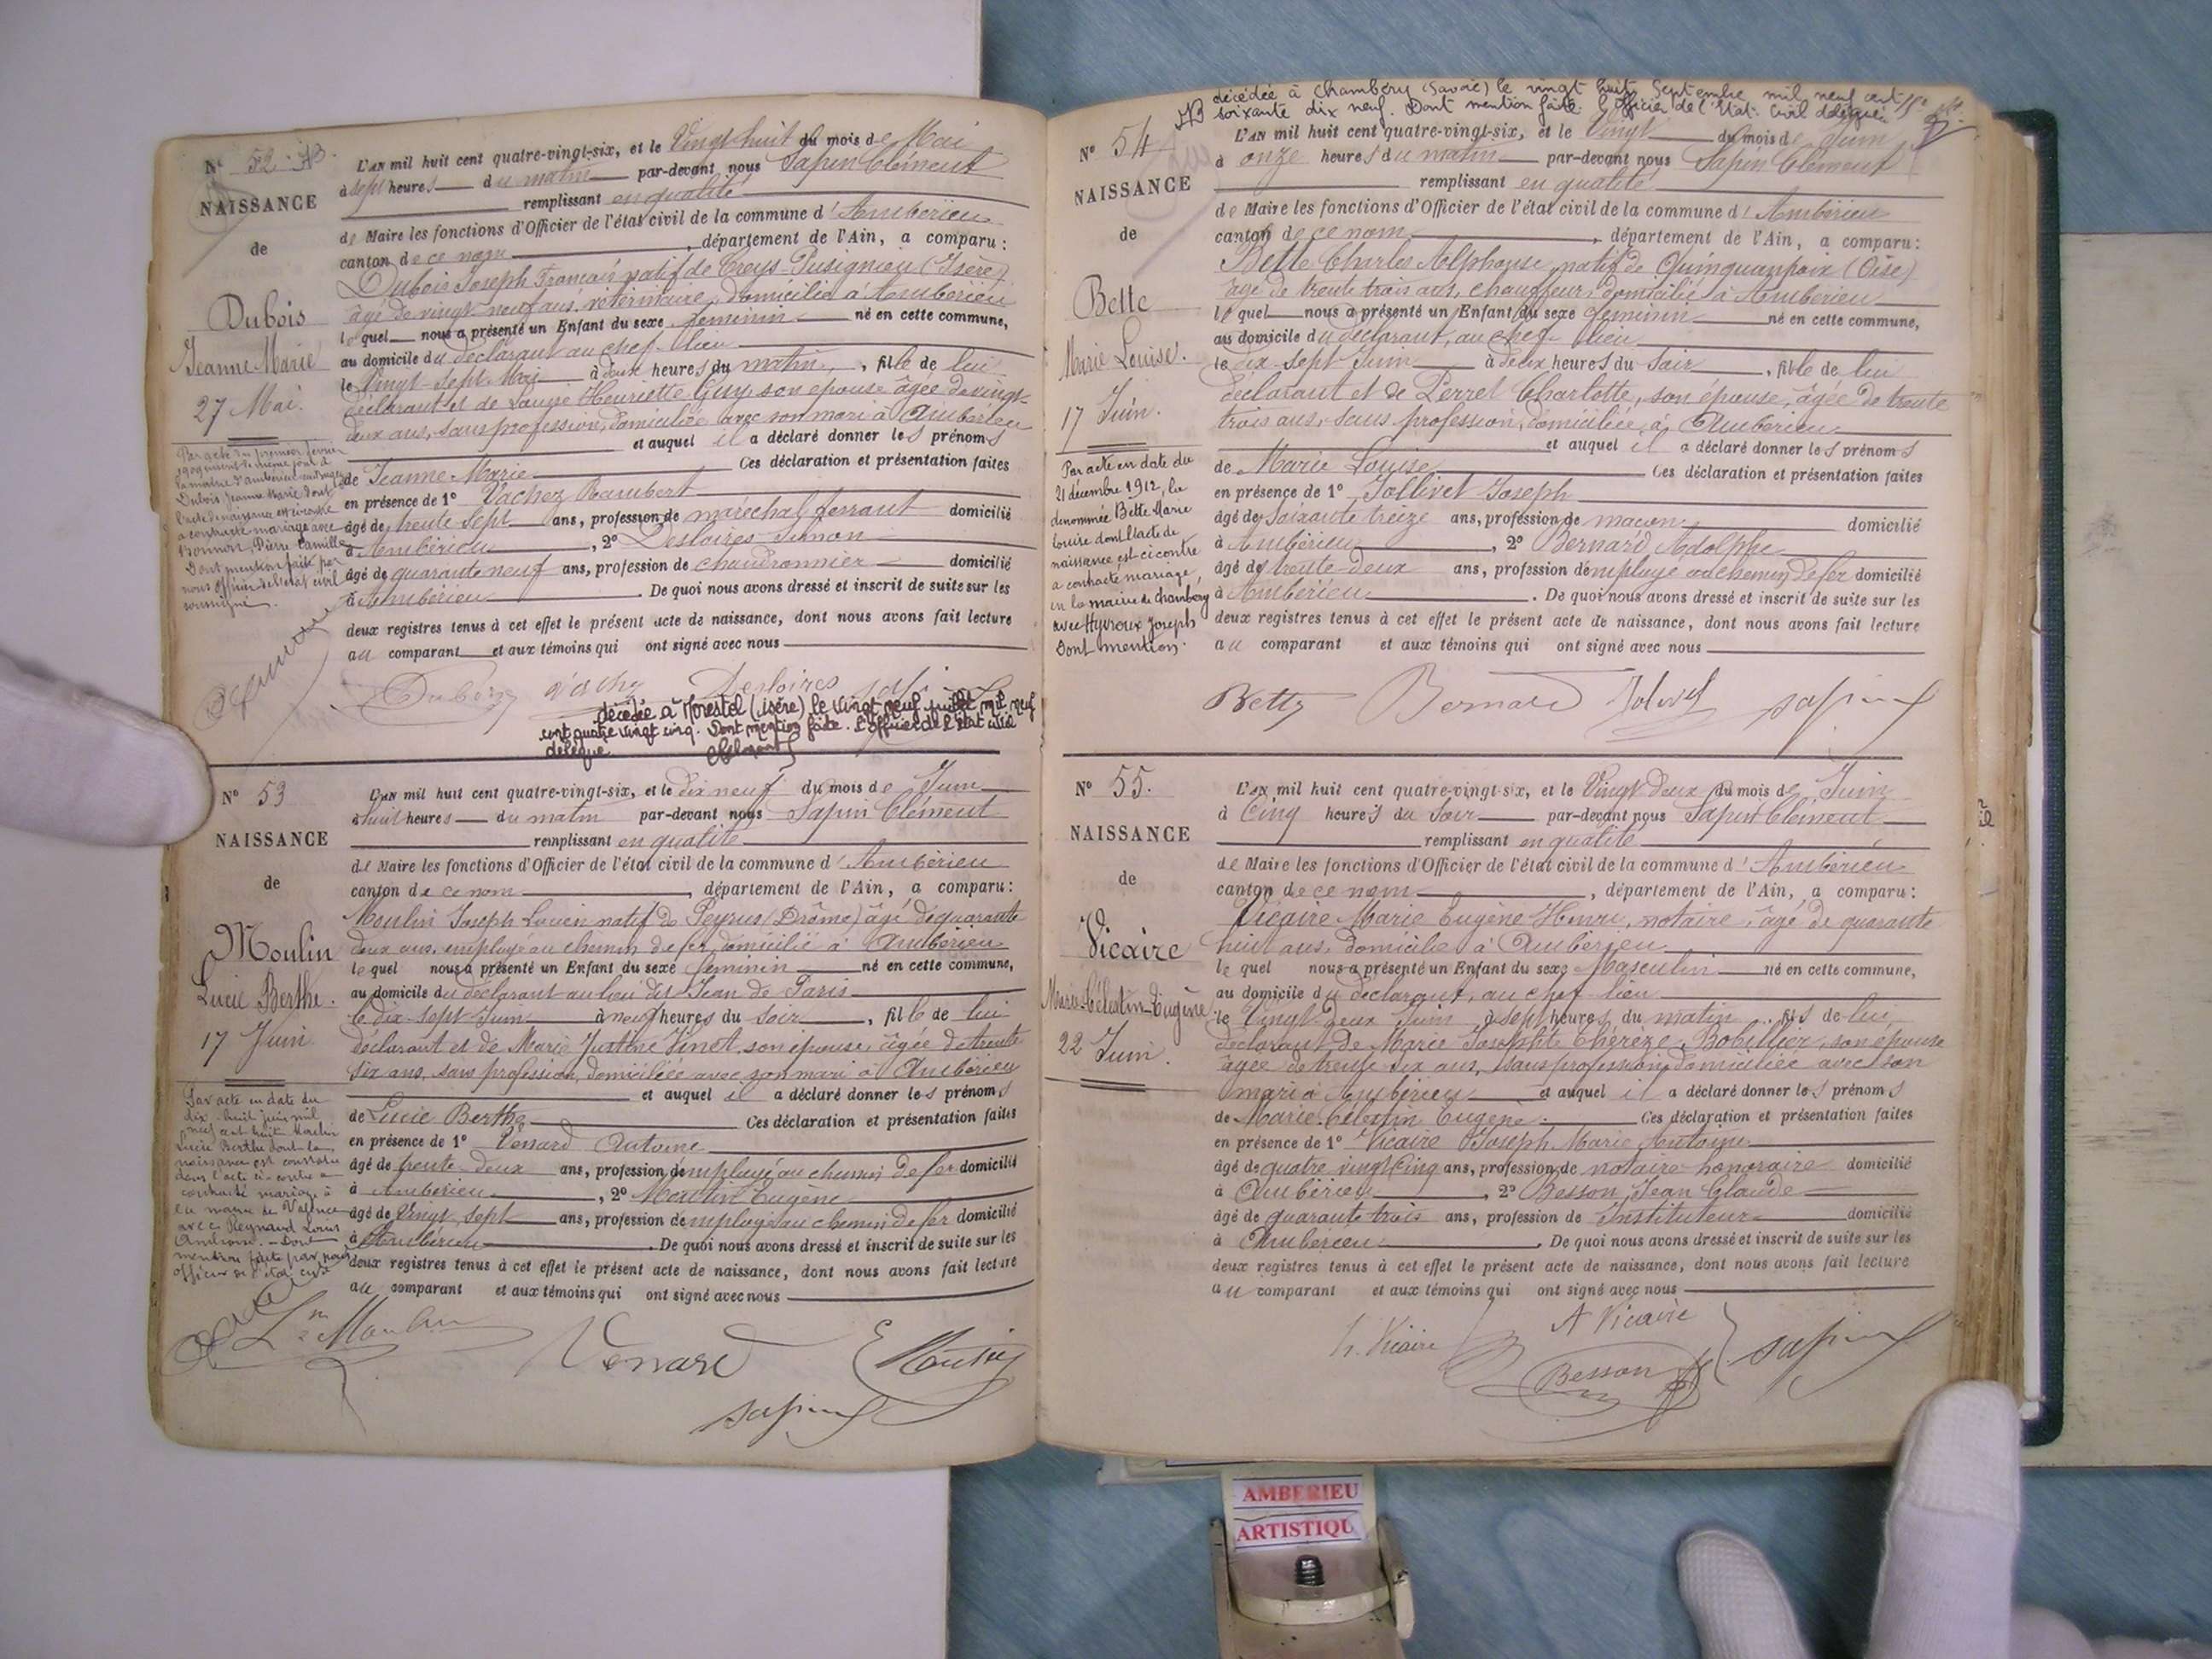 N° 52
NAISSANCE
de
Dubois
Jeanne Marie
27 Mai.
Par acte du premier février
la mairie d'Ambérieu
Dubois Jeanne Marie dont
l'acte de naissance est ci-contre
a contracté mariage avec
Bonnon, Pierre Camille
Dont mention faite par
nous Officier de l'état civil
soussigné.
L'AN mil huit cent quatre-vingt-six, et le Vingt huit du mois de Mai
à sept heures du matin par-devant nous Sapin Clément
remplissant en qualité
de Maire les fonctions d'Officier de l'état civil de la commune d'Ambérieu
canton de ce nom, département de l'Ain, a comparu:
Dubois Joseph Français natif de Creys-Pusignieu (Isère)
âgé de vingt neuf ans, vétérinaire, domicilié à Ambérieu
lequel nous a présenté un Enfant du sexe féminin né en cette commune,
au domicile du déclarant au chef-lieu
le Vingt-sept Mai à deux heures du matin, fille de lui
déclarant et de Louise Henriette Guy son épouse âgée de vingt-
deux ans, sans profession, domiciliée avec son mari à Ambérieu
et auquel il a déclaré donner les prénoms
de Jeanne Marie Ces déclaration et présentation faites
en présence de 1° Vachez Rambert
âgé de trente sept ans, profession de maréchal ferrant domicilié
à Ambérieu, 2° Desloires Simon
âgé de quarante neuf ans, profession de chaudronnier domicilié
à Ambérieu. De quoi nous avons dressé et inscrit de suite sur les
deux registres tenus à cet effet le présent acte de naissance, dont nous avons fait lecture
au comparant et aux témoins qui ont signé avec nous
Dubois Vachez Desloires Sapin
décédée à Morestel (isère) le vingt neuf juillet mil neuf
cent quatre vingt cinq. Dont mention faite. L'officier de l'état civil
délégué
N° 53
NAISSANCE
de
Moulin
Lucie Berthe.
17 Juin
Par acte en date du
dix-huit juin mil
neuf cent huit Moulin
Lucie Berthe dont la
naissance est constatée
dans l'acte ci-contre a
contracté mariage à
la mairie de Valence
avec Reynaud Louis
Ambroise. - Dont
mention faite par nous
officier de l'état civil
L'AN mil huit cent quatre-vingt-six, et le dix neuf du mois de Juin
à huit heures du matin par-devant nous Sapin Clément
remplissant en qualité
de Maire les fonctions d'Officier de l'état civil de la commune d'Ambérieu
canton de ce nom, département de l'Ain, a comparu:
Moulin Joseph Lucien natif de Peyrus (Drôme) âgé de quarante
deux ans, employé au chemin de fer, domicilié à Ambérieu
lequel nous a présenté un Enfant du sexe féminin né en cette commune,
au domicile du déclarant au lieu dit Jean de Paris
le dix-sept Juin à neuf heures du soir, fille de lui
déclarant et de Marie Justine Vinet, son épouse, âgée de trente
six ans, sans profession, domiciliée avec son mari à Ambérieu
et auquel il a déclaré donner les prénoms
de Lucie Berthe Ces déclaration et présentation faites
en présence de 1° Venard Antoine
âgé de trente-deux ans, profession d'employé au chemin de fer domicilié
à Ambérieu, 2° Moulin Eugène
âgé de Vingt sept ans, profession d'employé au chemin de fer domicilié
à Ambérieu. De quoi nous avons dressé et inscrit de suite sur les
deux registres tenus à cet effet le présent acte de naissance, dont nous avons fait lecture
au comparant et aux témoins qui ont signé avec nous
Ln Moulin Venard E Moulin
Sapin
décédée à Chambéry (Savoie) le vingt huit Septembre mil neuf cent
soixante dix neuf. Dont mention faite. l'Officier de l'Etat Civil délégué
N° 54
NAISSANCE
de
Bette
Marie Louise.
17 Juin.
Par acte en date du
21 décembre 1912, la
dénommée Bette Marie
Louise dont l'acte de
naissance est ci contre
a contracté mariage,
en la mairie de Chambéry
avec Hyvroux Joseph
Dont mention.
L'AN mil huit cent quatre-vingt-six, et le Vingt du mois de Juin
à onze heures du matin par-devant nous Sapin Clément
remplissant en qualité
de Maire les fonctions d'Officier de l'état civil de la commune d'Ambérieu
canton de ce nom, département de l'Ain, a comparu:
Bette Charles Alphonse, natif de Quinquanpoix (Oise)
âgé de trente trois ans, chauffeur, domicilié à Ambérieu
lequel nous a présenté un Enfant du sexe féminin né en cette commune,
au domicile du déclarant, au chef-lieu
le dix-sept Juin à deux heures du soir, fille de lui
déclarant et de Perret Charlotte, son épouse, âgée de trente
trois ans, sans profession, domiciliée à Ambérieu
et auquel il a déclaré donner les prénoms
de Marie Louise Ces déclaration et présentation faites
en présence de 1° Jollivet Joseph
âgé de soixante treize ans, profession de maçon domicilié
à Ambérieu, 2° Bernard Adolphe
âgé de trente-deux ans, profession d'employé au chemin de fer domicilié
à Ambérieu. De quoi nous avons dressé et inscrit de suite sur les
deux registres tenus à cet effet le présent acte de naissance, dont nous avons fait lecture
au comparant et aux témoins qui ont signé avec nous
Bette Bernard Jolivet Sapin
N° 55.
NAISSANCE
de
Vicaire
Marie-Célestin-Eugène
22 Juin.
L'AN mil huit cent quatre-vingt-six, et le Vingt deux du mois de Juin
à Cinq heures du Soir par-devant nous Sapin Clément
remplissant en qualité
de Maire les fonctions d'Officier de l'état civil de la commune d'Ambérieu
canton de ce nom, département de l'Ain, a comparu:
Vicaire Marie Eugène Henri, notaire, âgé de quarante
huit ans, domicilié à Ambérieu
lequel nous a présenté un Enfant du sexe Masculin né en cette commune,
au domicile du déclarant, au chef-lieu
le Vingt deux Juin à sept heures du matin, fils de lui,
déclarant, de Marie Josephte Thérèze Bobillier, son épouse
âgée de trente six ans, sans profession, domiciliée avec son
mari à Ambérieu et auquel il a déclaré donner les prénoms
de Marie Célestin Eugène. Ces déclaration et présentation faites
en présence de 1° Vicaire Joseph Marie Antoine
âgé de quatre vingt cinq ans, profession de notaire honoraire domicilié
à Ambérieu, 2° Besson Jean Claude
âgé de quarante trois ans, profession de Instituteur domicilié
à Ambérieu. De quoi nous avons dressé et inscrit de suite sur les
deux registres tenus à cet effet le présent acte de naissance, dont nous avons fait lecture
au comparant et aux témoins qui ont signé avec nous
h. Vicaire A Vicaire
Besson Sapin
AMBERIEU
ARTISTIQU